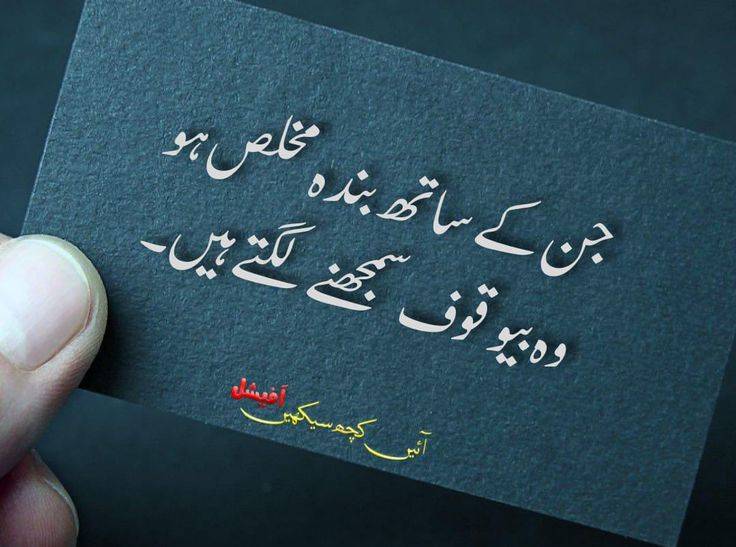 جن کے ساتھ بندہ مخلص ہو
وہ بیوقوف سمجھنے لگتے ہیں۔
آئیں کچھ سیکھیں آفیشل